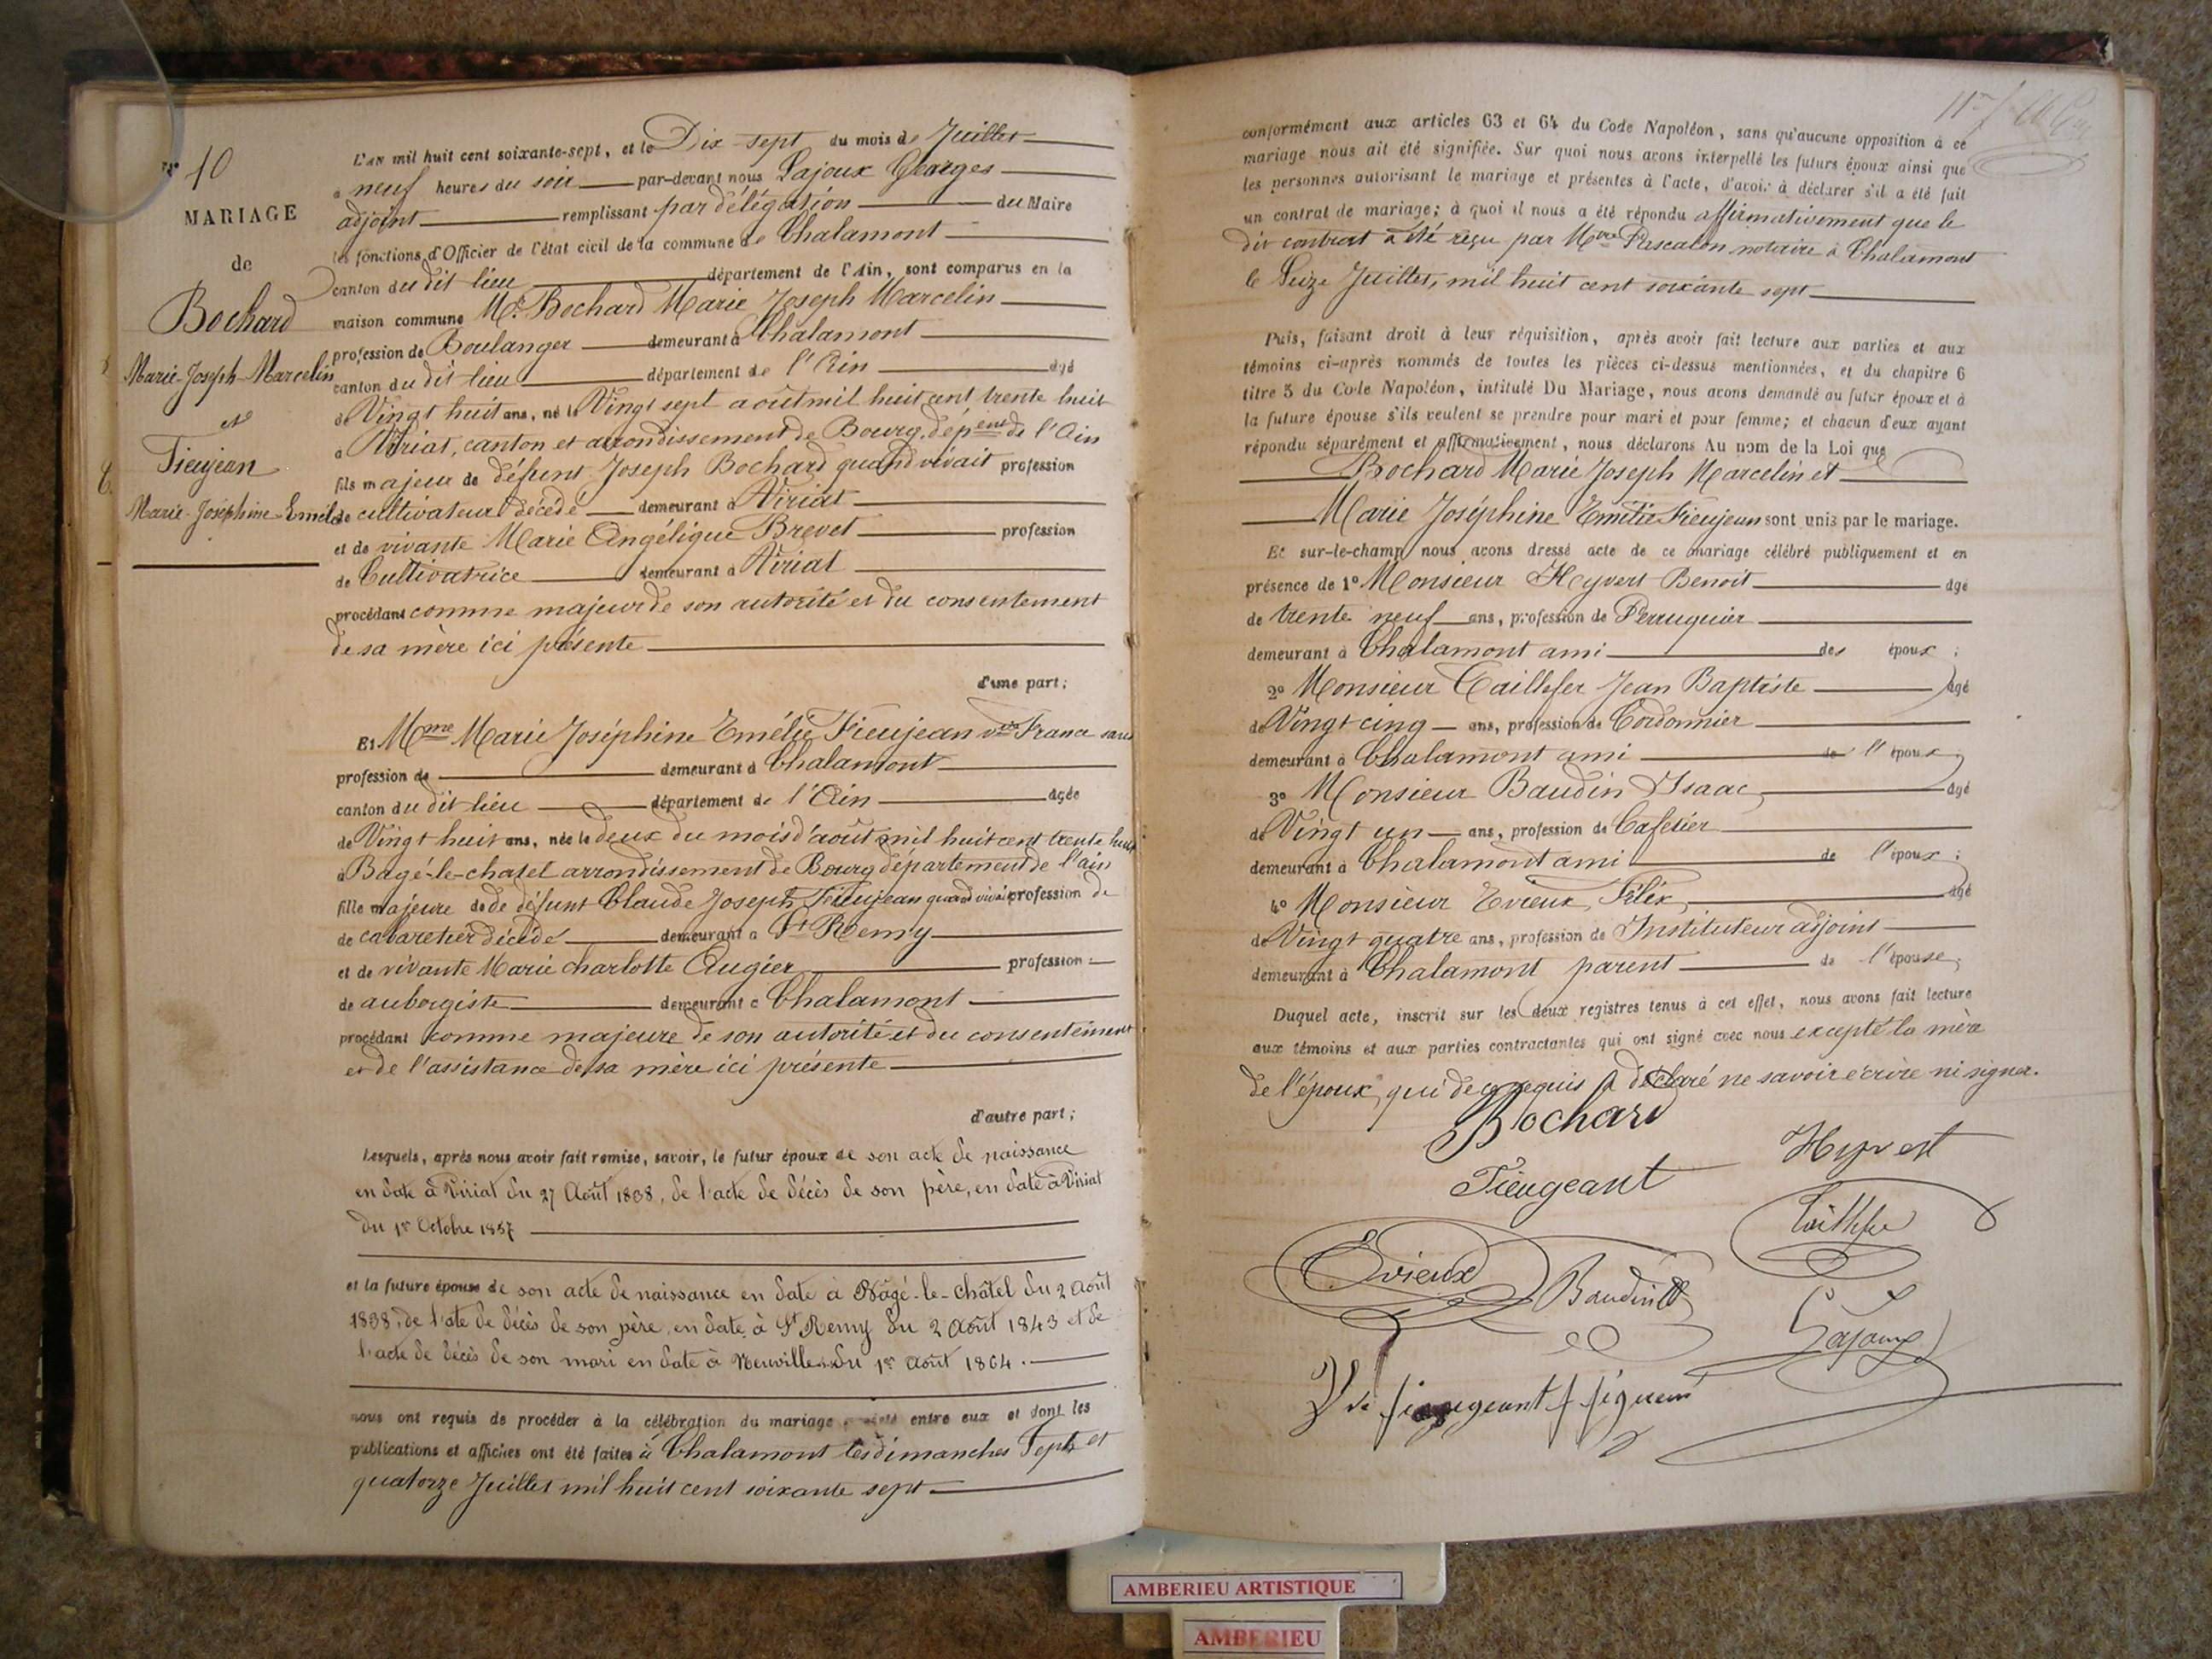 N° 10
MARIAGE
de
Bochard
Marie-Joseph-Marcelin
et
Fieujean
Marie-Joséphine-Emélie
L'AN mil huit cent soixante-sept, et le Dix-sept du mois de Juillet
à neuf heures du soir par-devant nous Lajoux Georges
adjoint remplissant par délégation du Maire
les fonctions d'Officier de l'état civil de la commune de Chalamont
canton du dit lieu département de l'Ain, sont comparus en la
maison commune Mr. Bochard Marie Joseph Marcelin
profession de Boulanger demeurant à Chalamont
canton du dit lieu département de l'Ain âgé
de Vingt huit ans, né le Vingt sept août mil huit cent trente huit
à Viriat, canton et arrondissement de Bourg, dépent de l'Ain
fils majeur de défunt Joseph Bochard quand vivait profession
de cultivateur décédé demeurant à Viriat
et de vivante Marie Angélique Brevet profession
de Cultivatrice demeurant à Viriat
procédant comme majeur de son autorité et du consentement
de sa mère ici présente
d'une part;
Et Mme Marie Joséphine Emélie Fieujean vve France sans
profession de demeurant à Chalamont
canton du dit lieu département de l'Ain âgée
de Vingt huit ans, née le deux du mois d'août mil huit cent trente huit
à Bagé-le-chatel arrondissement de Bourg département de l'ain
fille majeure de de défunt Claude Joseph Fieujean quand vivait profession de
de cabaretier décédé demeurant à St Remy
et de vivante Marie charlotte Augier profession
de aubergiste demeurant à Chalamont
procédant comme majeure de son autorité et du consentement
et de l'assistance de sa mère ici présente
d'autre part;
Lesquels, après nous avoir fait remise, savoir, le futur époux de son acte de naissance
en date à Viriat du 27 Août 1838, de l'acte de décès de son père, en date à Viriat
du 1er Octobre 1857
et la future épouse de son acte de naissance en date à Bâgé-le-Châtel du 2 Août
1838, de l'ate de décès de son père, en date à St Remy du 2 Août 1843 et de
l'acte de décès de son mari en date à Neuville du 1er Août 1864.
nous ont requis de procéder à la célébration du mariage projeté entre eux et dont les
publications et affiches ont été faites à Chalamont les dimanches Sept et
quatorze Juillet mil huit cent soixante sept
conformément aux articles 63 et 64 du Code Napoléon, sans qu'aucune opposition à ce
mariage nous ait été signifiée. Sur quoi nous avons interpellé les futurs époux ainsi que
les personnes autorisant le mariage et présentes à l'acte, d'avoir à déclarer s'il a été fait
un contrat de mariage; à quoi il nous a été répondu affirmativement que le
dit contrat a été reçu par Mtre Pascalon notaire à Chalamont
le Seize Juillet, mil huit cent soixante sept
Puis, faisant droit à leur réquisition, après avoir fait lecture aux parties et aux
témoins ci-après nommés de toutes les pièces ci-dessus mentionnées, et du chapitre 6
titre 5 du Code Napoléon, intitulé Du Mariage, nous avons demandé au futur époux et à
la future épouse s'ils veulent se prendre pour mari et pour femme; et chacun d'eux ayant
répondu séparément et affirmativement, nous déclarons Au nom de la Loi que
Bochard Marie Joseph Marcelin et
Marie Joséphine Emélie Fieujean sont unis par le mariage.
Et sur-le-champ nous avons dressé acte de ce mariage célébré publiquement et en
présence de 1° Monsieur Heyvert Benoit âgé
de trente neuf ans, profession de Perruquier
demeurant à Chalamont ami des époux;
2° Monsieur Taillefer Jean Baptiste âgé
de Vingt cinq ans, profession de Cordonnier
demeurant à Chalamont ami de l'époux;
3° Monsieur Baudin Isaac âgé
de Vingt un ans, profession de Cafetier
demeurant à Chalamont ami de l'époux;
4° Monsieur Evieux, Félix, âgé
de Vingt quatre ans, profession de Instituteur adjoint
demeurant à Chalamont parent de l'épouse;
Duquel acte, inscrit sur les deux registres tenus à cet effet, nous avons fait lecture
aux témoins et aux parties contractantes qui ont signé avec nous excepté la mère
de l'époux, qui de ce requis a déclaré ne savoir écrire ni signer.
Bochard
Hyvert
Fieugeant
Taillefer
Evieux
Baudin
Lajoux
Ve
AMBERIEU ARTISTIQUE
AMBERIEU